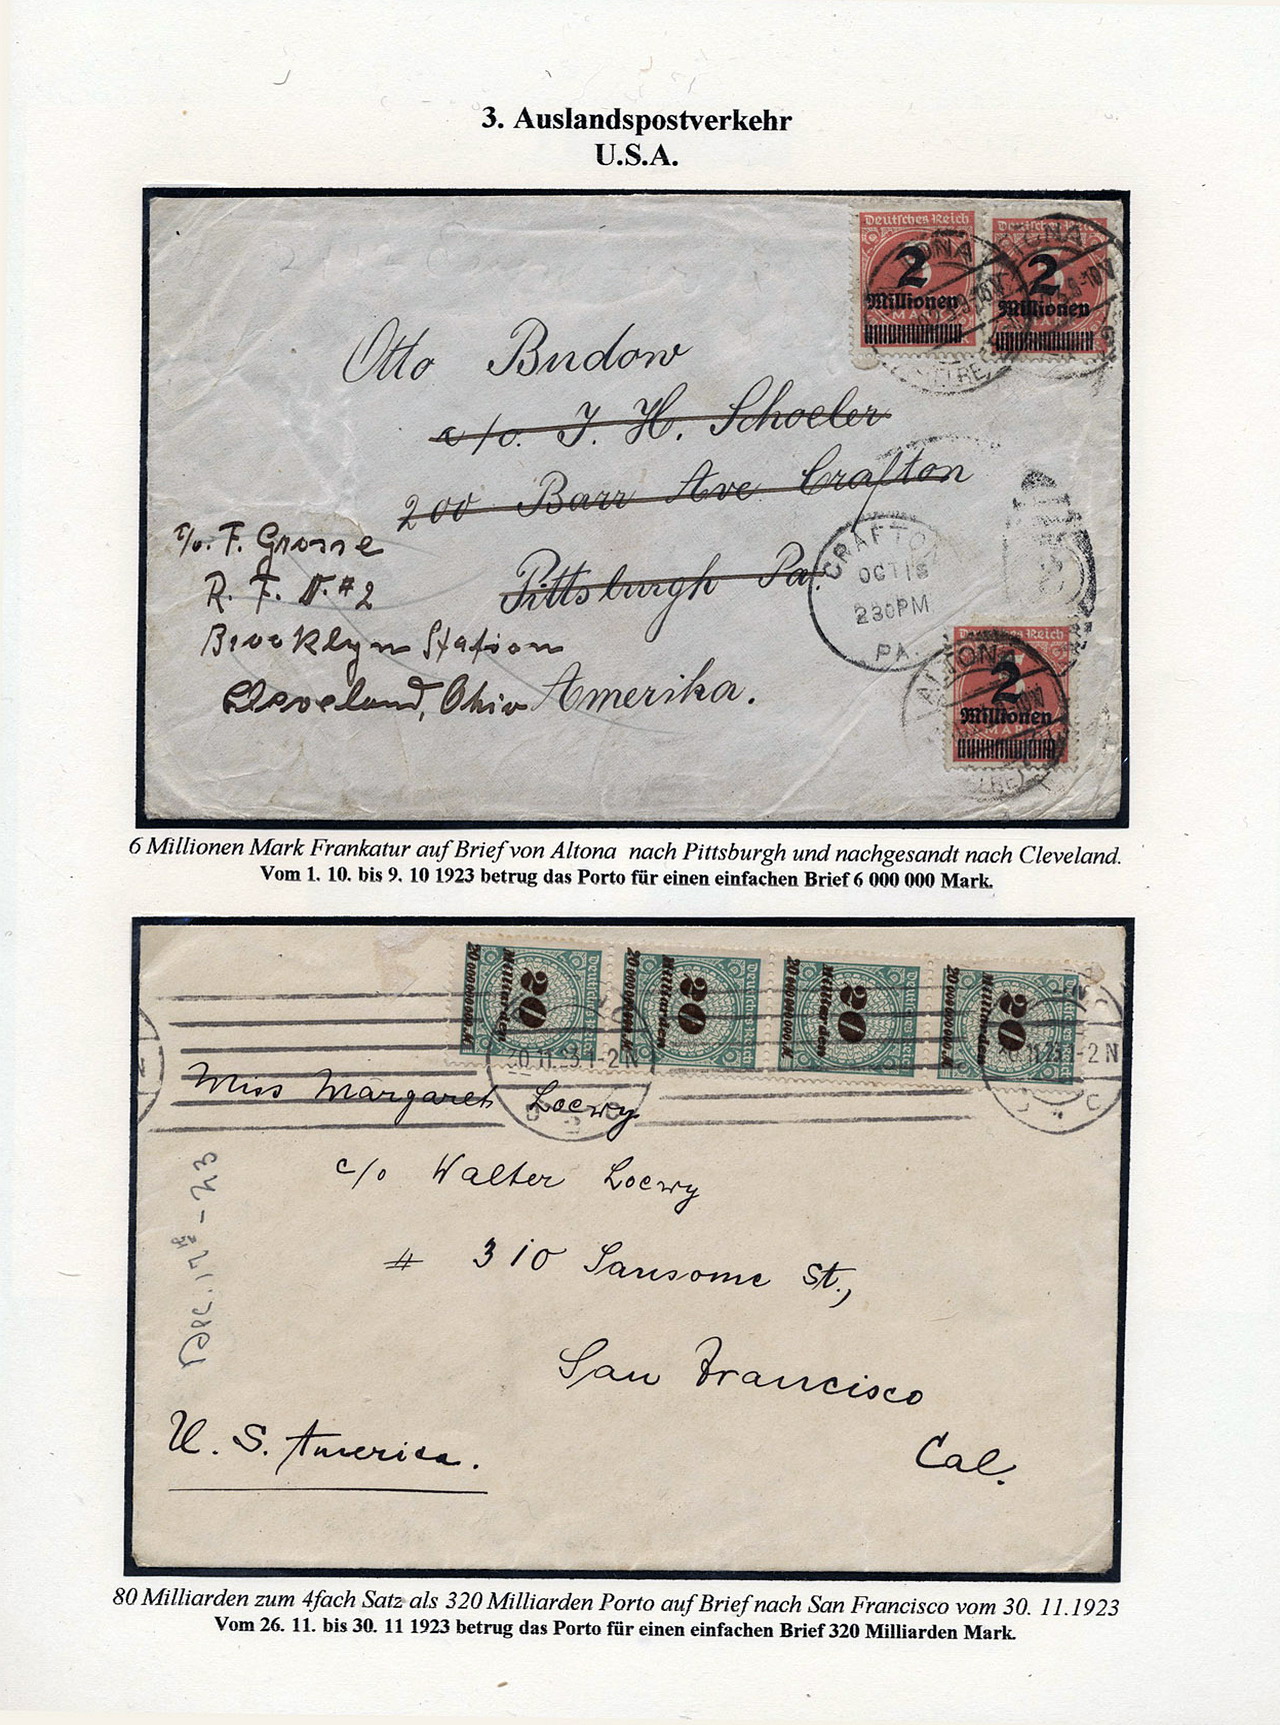 3. Auslandspostverkehr
U.S.A.
Deutsches Reich
2
Millionen
MARK
Deutsches Reich
2
Millionen
MARK
ALTONA
Otto Budow
c/o. J. H. Schoeler
200 Barr Ave Crafton
Pittsburgh Pa.
c/o. F. Grosse
R. F. D. #2
Brooklyn Station
Cleveland, Ohio Amerika.
CRAFTON
OCT 18
230PM
PA.
Deutsches Reich
2
Millionen
MARK
ALTONA
6 Millionen Mark Frankatur auf Brief von Altona nach Pittsburgh und nachgesandt nach Cleveland.
Vom 1. 10. bis 9. 10 1923 betrug das Porto für einen einfachen Brief 6 000 000 Mark.
20 000 000 000 M
20
Milliarden
Deutsches Reich
20 000 000 000 M
20
Milliarden
Deutsches Reich
20 000 000 000 M
20
Milliarden
Deutsches Reich
20 000 000 000 M
20
Milliarden
30.11.23.1-2N
30.11.23.1-2N
Miss Margaret Loewy
c/o Walter Loewy
# 310 Sansome St.,
San Francisco
Cal.
U. S. America.
Dec. 17th - 23
80 Milliarden zum 4fach Satz als 320 Milliarden Porto auf Brief nach San Francisco vom 30. 11.1923
Vom 26. 11. bis 30. 11 1923 betrug das Porto für einen einfachen Brief 320 Milliarden Mark.